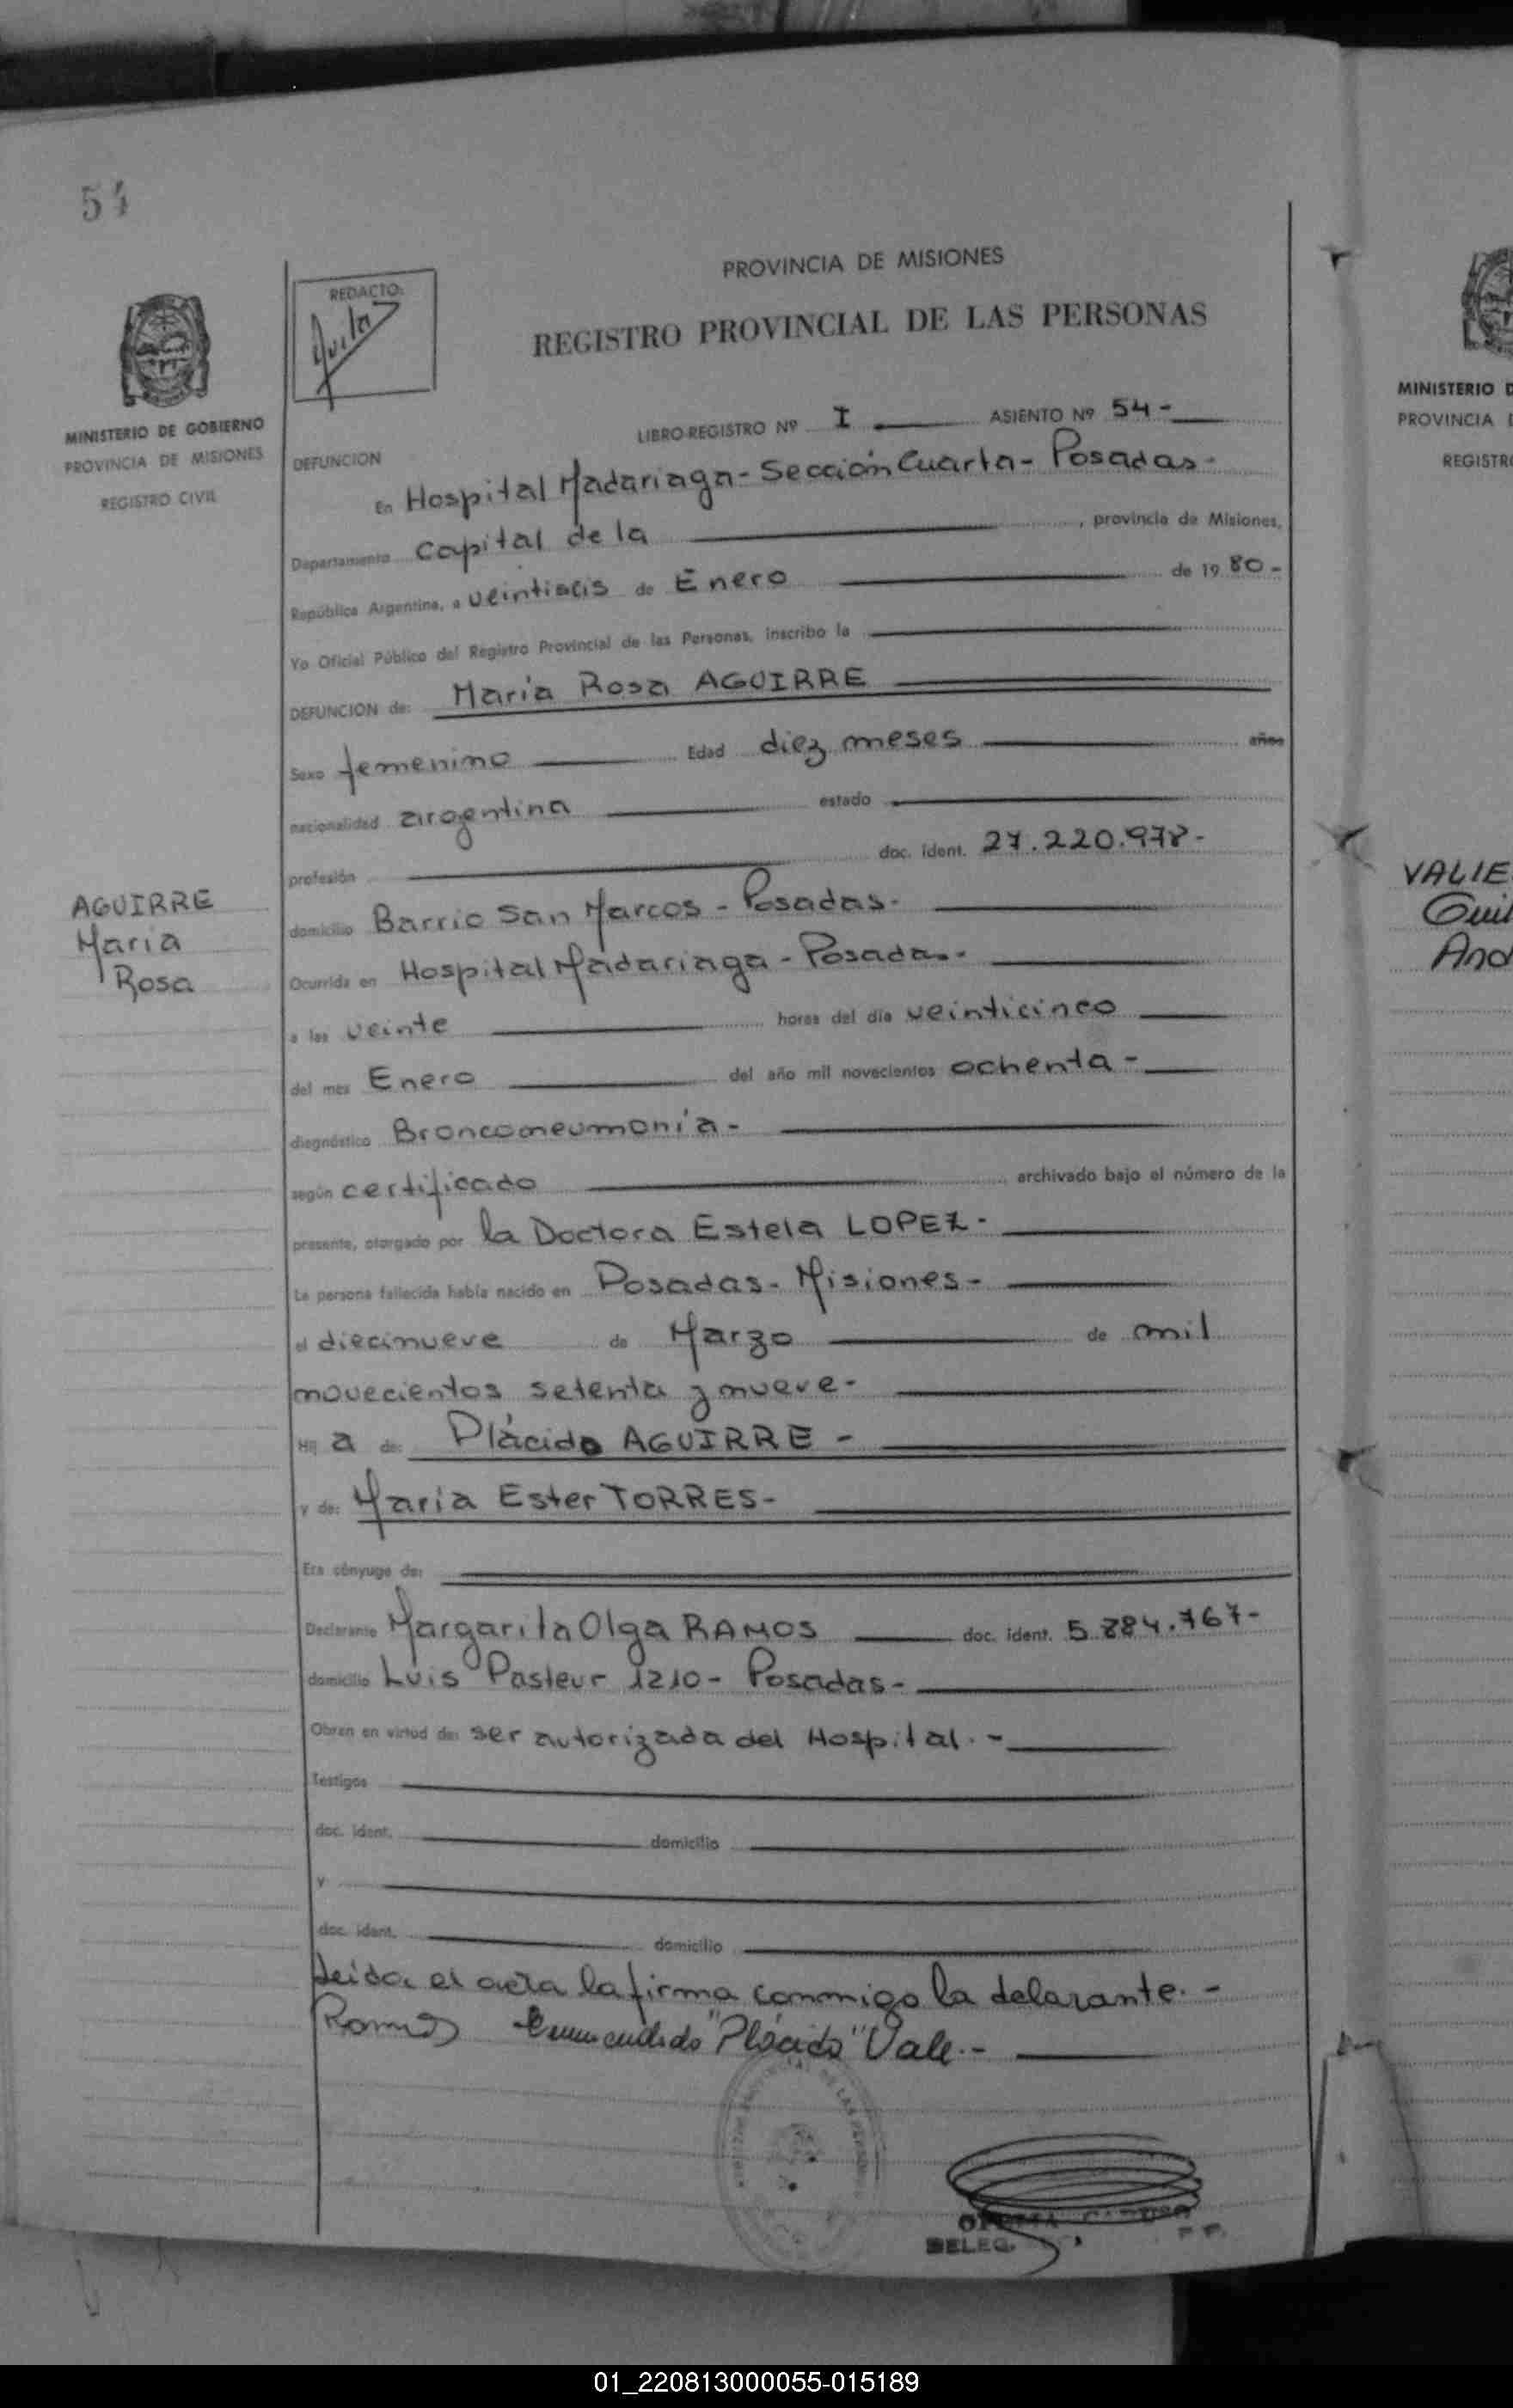 54
PROVINCIA DE MISIONES
REGISTRO PROVINCIAL DE LAS PERSONAS
REDACTO:
MINISTERIO DE GOBIERNO
PROVINCIA DE MISIONES
REGISTRO CIVIL
LIBRO-REGISTRO Nº I ASIENTO Nº 54-
DEFUNCION
En Hospital Madariaga - Sección Cuarta - Posadas-
Departamento Capital de la , provincia de Misiones,
República Argentina, a veintiseis de Enero de 19 80-
Yo Oficial Público del Registro Provincial de las Personas, inscribo la
DEFUNCION de: María Rosa AGUIRRE
Sexo femenino Edad diez meses años
nacionalidad argentina estado
profesión doc. ident. 27.220.978-
AGUIRRE
Maria
Rosa
domicilio Barrio San Marcos - Posadas-
Ocurrida en Hospital Madariaga - Posadas-
a las veinte horas del día veinticinco
del mes Enero del año mil novecientos ochenta-
diagnóstico Bronconeumonía-
según certificado archivado bajo el número de la
presente, otorgado por la Doctora Estela LOPEZ-
La persona fallecida había nacido en Posadas- Misiones-
el diecinueve de Marzo de mil
novecientos setenta y nueve-
Hij a de: Plácido AGUIRRE-
y de: Maria Ester TORRES-
Era cónyuge de:
Declarante Margarita Olga RAMOS doc. ident. 5.884.767-
domicilio Luis Pasteur 1210- Posadas-
Obran en virtud de: ser autorizada del Hospital.-
Testigos
doc. ident. domicilio
y
doc. ident. domicilio
Leida el acta la firma conmigo la delarante.-
Ramos Enmendido "Plácido" Vale.-
DELEG.
MINISTERIO D
PROVINCIA
REGISTR
VALIE
Guil
And
01_220813000055-015189